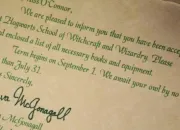 O'Connor,
We are pleased to inform you that you have been accep
Hogwarts School of Witchcraft and Wizardry. Please
enclosed a list of all necessary books and equipment.
Term begins on September 1. We await your owl by no
than July 31.
Sincerely,
McGonagall
McGonagall